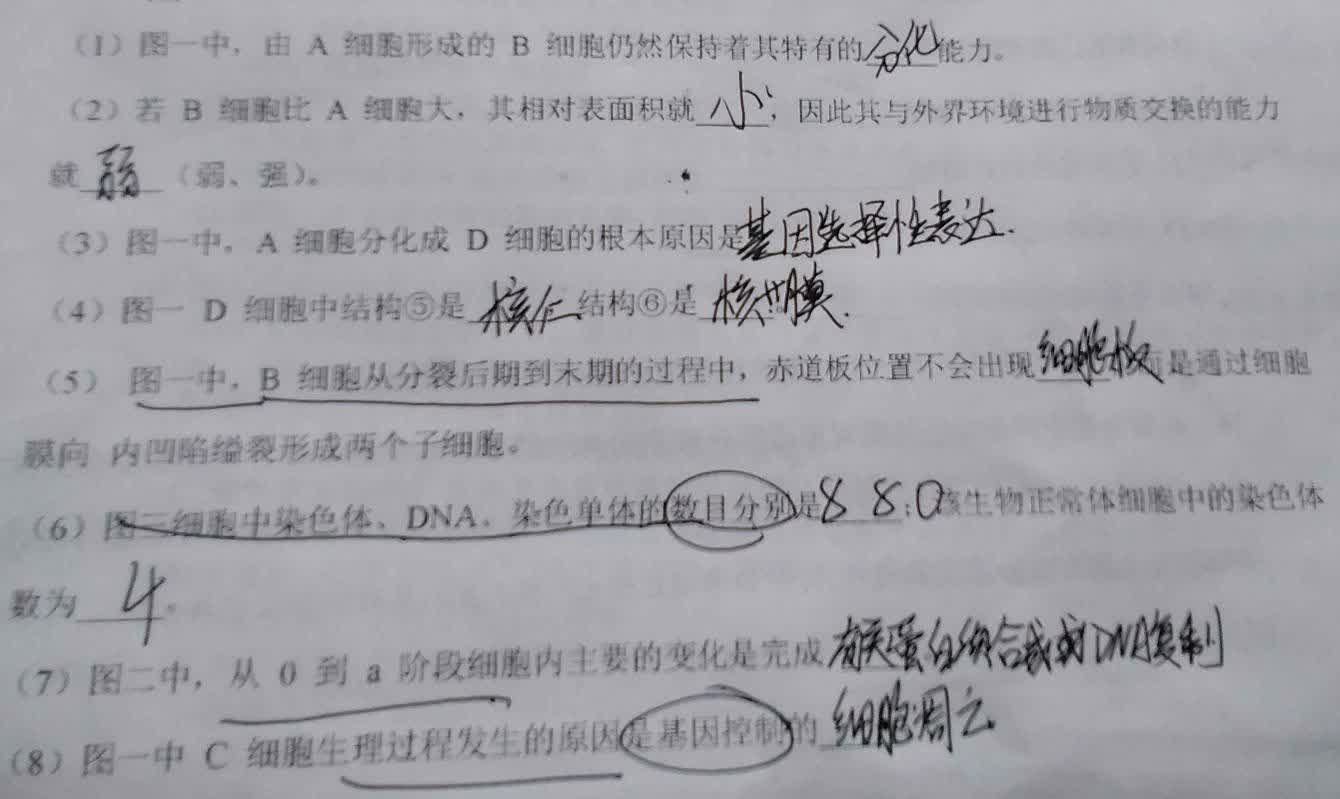 (1)图一中，由 A 细胞形成的 B 细胞仍然保持着其特有的分化能力。
(2)若 B 细胞比 A 细胞大，其相对表面积就小，因此其与外界环境进行物质交换的能力
就弱（弱、强）。
(3)图一中，A 细胞分化成 D 细胞的根本原因是基因选择性表达.
(4)图一 D 细胞中结构⑤是核仁结构⑥是核膜.
(5) 图一中，B 细胞从分裂后期到末期的过程中，赤道板位置不会出现细胞板而是通过细胞
膜向 内凹陷缢裂形成两个子细胞。
(6)图二细胞中染色体、DNA、染色单体的数目分别是8 8:0该生物正常体细胞中的染色体
数为4。
(7)图二中，从 0 到 a 阶段细胞内主要的变化是完成有关蛋白的合成或DNA复制
(8)图一中 C 细胞生理过程发生的原因是基因控制的细胞凋亡